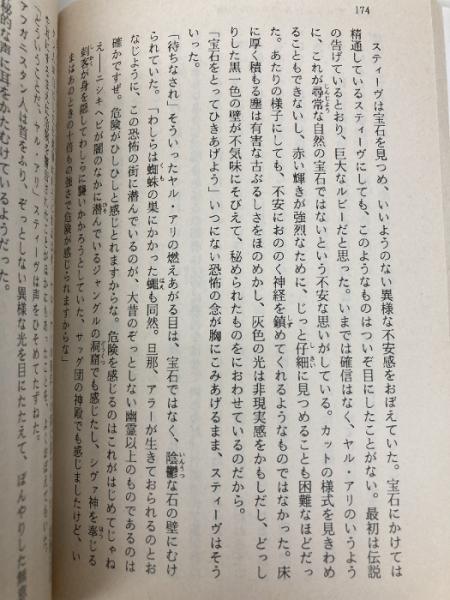 174
スティーヴは宝石を見つめ、いいようのない異様な不安感をおぼえていた。宝石にかけては
精通しているスティーヴにしても、このようなものはついぞ目にしたことがない。最初は伝説
の告げているとおり、巨大なルビーだと思った。いまでは確信はなく、ヤル・アリのいうよう
に、これが尋常な自然の宝石ではないという不安な思いがしている。カットの様式を見きわめ
ることもできないし、赤い輝きが強烈なために、じっと仔細に見つめることも困難なほどだっ
た。あたりの様子にしても、不安におののく神経を鎮めてくれるようなものではなかった。床
に厚く積もる塵は有害な古ぶるしさをほのめかし、灰色の光は非現実感をかもしだし、どっし
りした黒一色の壁が不気味にそびえて、秘められたものをにおわせているのだから。
「宝石をとってひきあげよう」いつにない恐怖の念が胸にこみあげるまま、スティーヴはそう
いった。
「待ちなされ」そういったヤル・アリの燃えあがる目は、宝石ではなく、陰鬱な石の壁にむけ
られていた。「わしらは蜘蛛の巣にかかった蠅も同然。旦那、アラーが生きておられるのとお
なじように、この恐怖の街に潜んでいるのが、大昔のぞっとしない幽霊以上のものであるのは
確かですぜ。危険がひしひしと感じとれますからな。危険を感じるのはこれがはじめてじゃね
え――ニシキヘビが闇のなかに潜んでいるジャングルの洞窟でも感じたし、シヴァ神を奉じる
刺客が身を隠してわしらに襲いかかろうとしていた、サッグ団の神殿でも感じましたけど、い
まはあのときの十倍もの強さで危険が感じられますからな」
「どういうことだ、ヤル・アリ」スティーヴは声をひそめてたずねた。
アフガニスタン人は首をふり、ぞっとしない異様な光を目にたたえて、ぼんやりした
秘的な声に耳をかたむけているようだった。